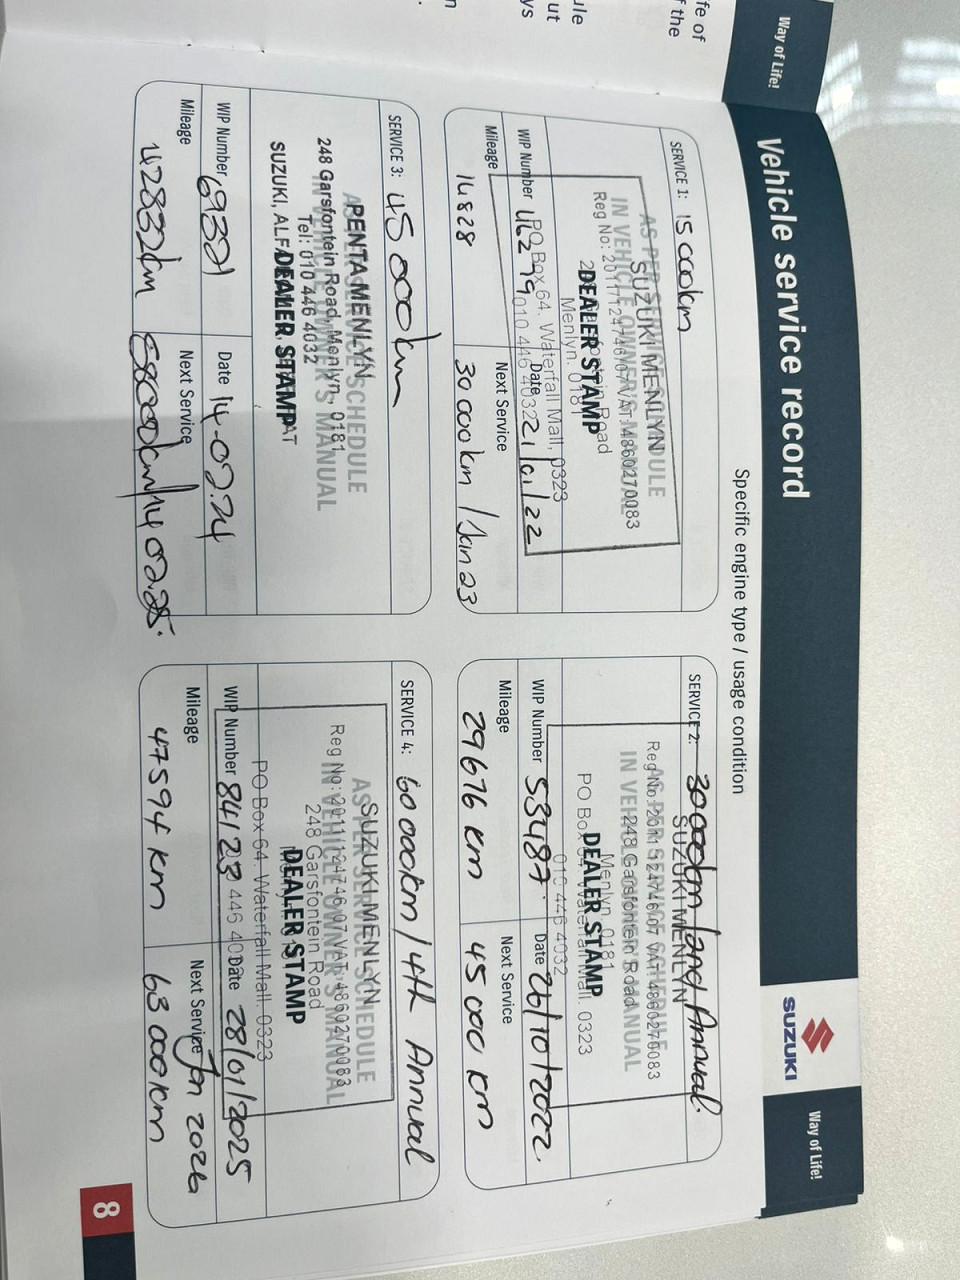 Way of Life!
Vehicle service record
SUZUKI
Way of Life!
Specific engine type / usage condition
SERVICE 1: 15 000km
AS PER SERVICE SCHEDULE
SUZUKI MENLYN
IN VEHICLE OWNER'S MANUAL
Reg No: 2011/124746/07 VAT: 4860270083
DEALER STAMP
Garsfontein Road
Menlyn. 0181
PO Box 64. Waterfall Mall, 0323
010 446 4032
WIP Number
Date 21/01/22
Mileage 14828
Next Service 30 000km / Jan 23
SERVICE 2: 30000km and Annual.
SUZUKI MENLYN
AS PER SERVICE SCHEDULE
Reg No: 2011/124746/07 VAT: 4860270083
IN VEHICLE OWNER'S MANUAL
248 Garsfontein Road
Menlyn. 0181
DEALER STAMP
PO Box 64. Waterfall Mall. 0323
010 446 4032
WIP Number 53487
Date 26/10/2022
Mileage 29676 km
Next Service 45 000 km
SERVICE 3: 45 000km
AS PER SERVICE SCHEDULE
PENTA MENLYN
IN VEHICLE OWNER'S MANUAL
248 Garsfontein Road, Menlyn, 0181
Tel: 010 446 4032
DEALER STAMP
SUZUKI,
WIP Number 69321
Date 14.02.24
Mileage 42832km
Next Service
SERVICE 4: 60 000km / 4th Annual
SUZUKI MENLYN
AS PER SERVICE SCHEDULE
Reg No: 2011/124746/07 VAT: 4860270083
IN VEHICLE OWNER'S MANUAL
248 Garsfontein Road
DEALER STAMP
PO Box 64. Waterfall Mall. 0323
WIP Number 84123
Date 28/01/2025
Mileage 47594 km
Next Service Jan 2026
63 000km
8